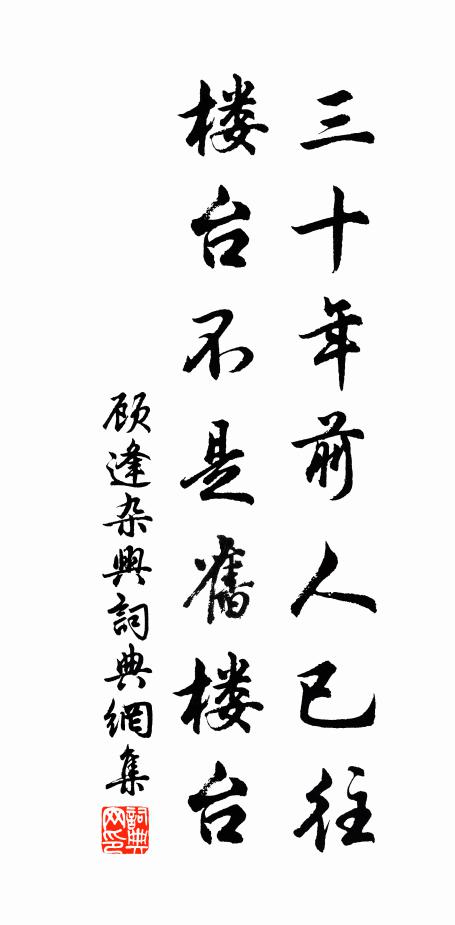 三十年前人已往
楼台不是舊楼台
顾逢杂興詞典網集
詞典网印